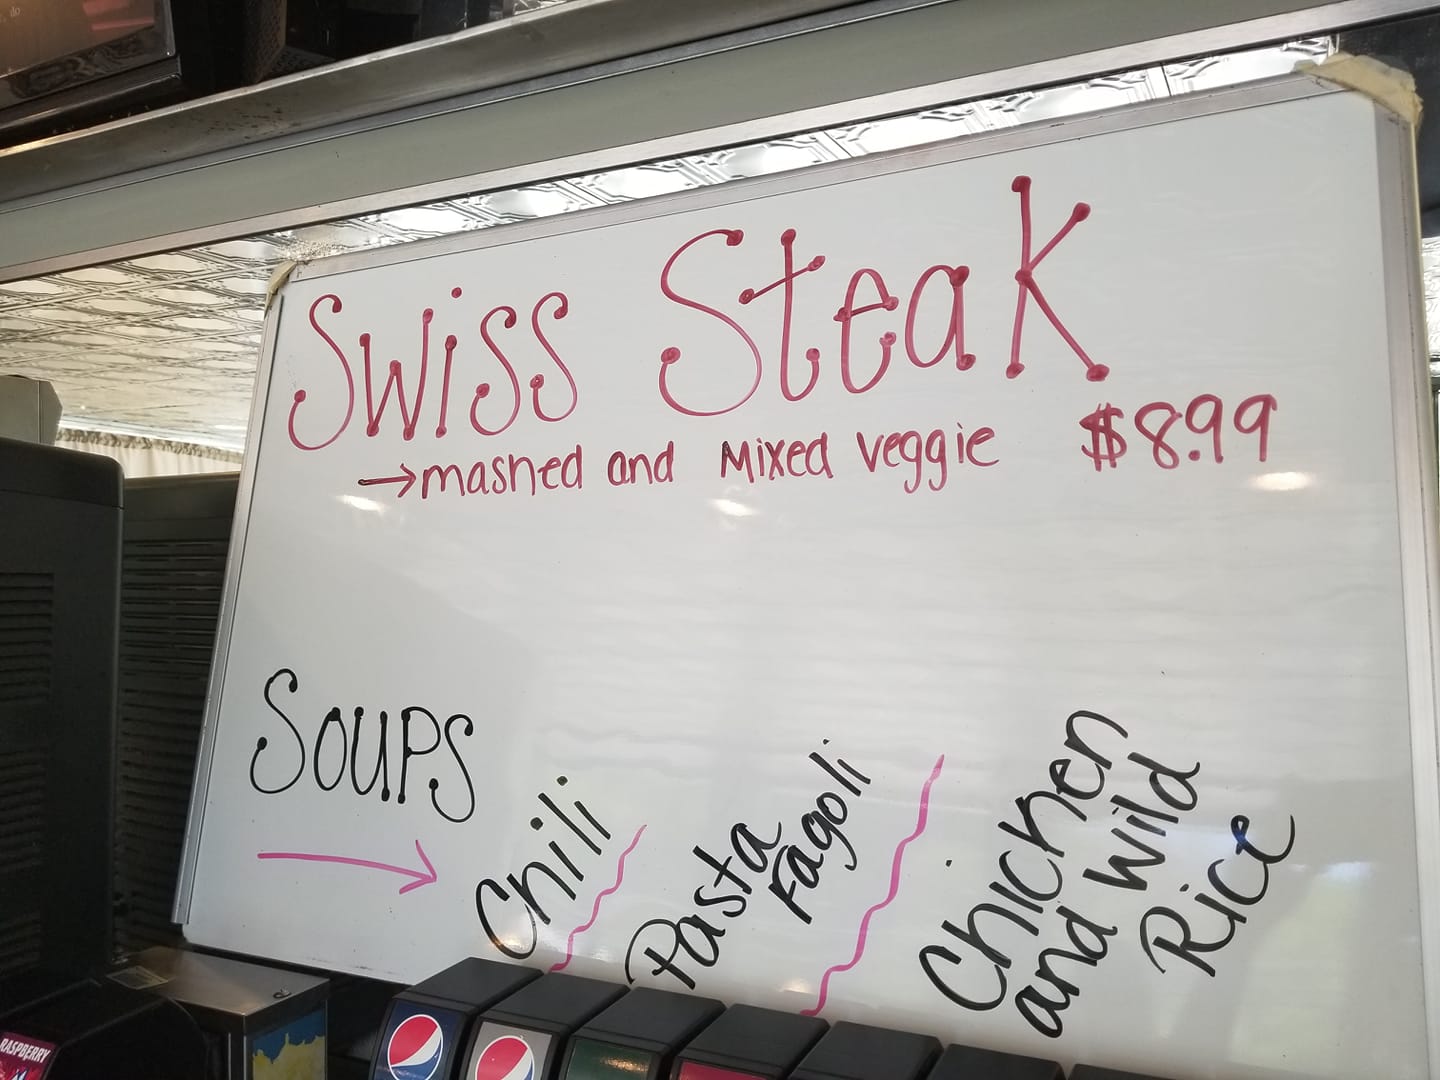 Swiss Steak
→mashed and Mixed veggie $8.99
Soups
Chili
Pasta
Fagoli
Chicken
and Wild
Rice
RASPBERRY